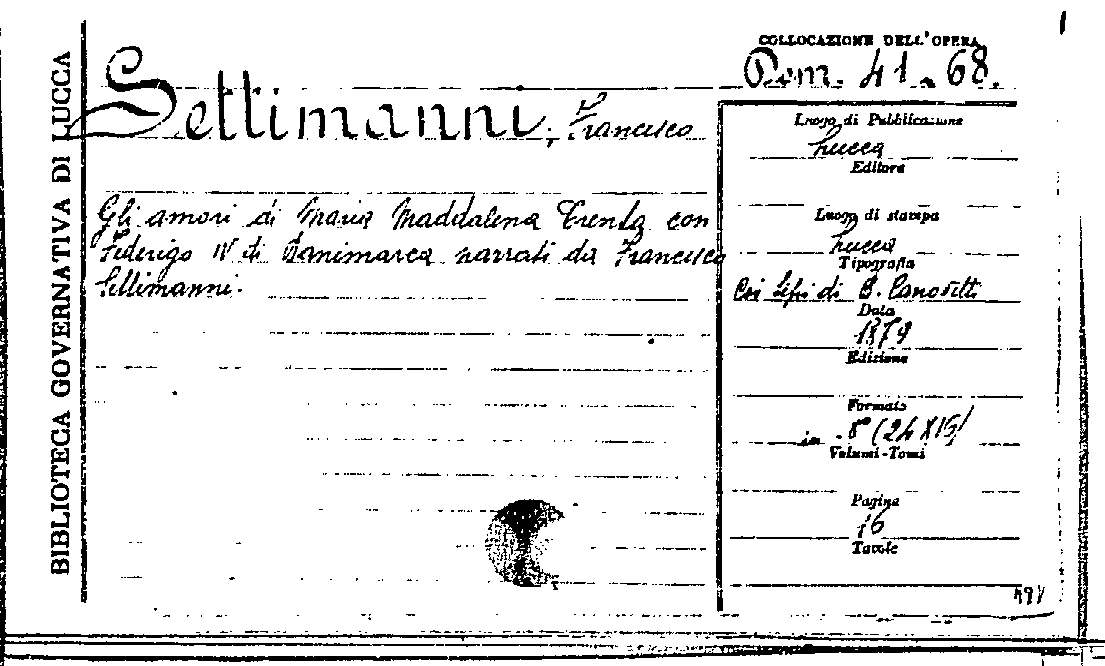 BIBLIOTECA GOVERNATIVA DI LUCCA
COLLOCAZIONE DELL'OPERA
Dom. 41.68.
Settimanni, Francesco
Gli amori di Maria Maddalena Trenta con
Federigo IV di Danimarca narrati da Francesco
Settimanni.
Luogo di Pubblicazione
Lucca
Editore
Luogo di stampa
Lucca
Tipografia
Coi tipi di B. Canovetti
Data
1879
Edizione
Formato
in 8° (24X16)
Volumi-Tomi
Pagine
16
Tavole